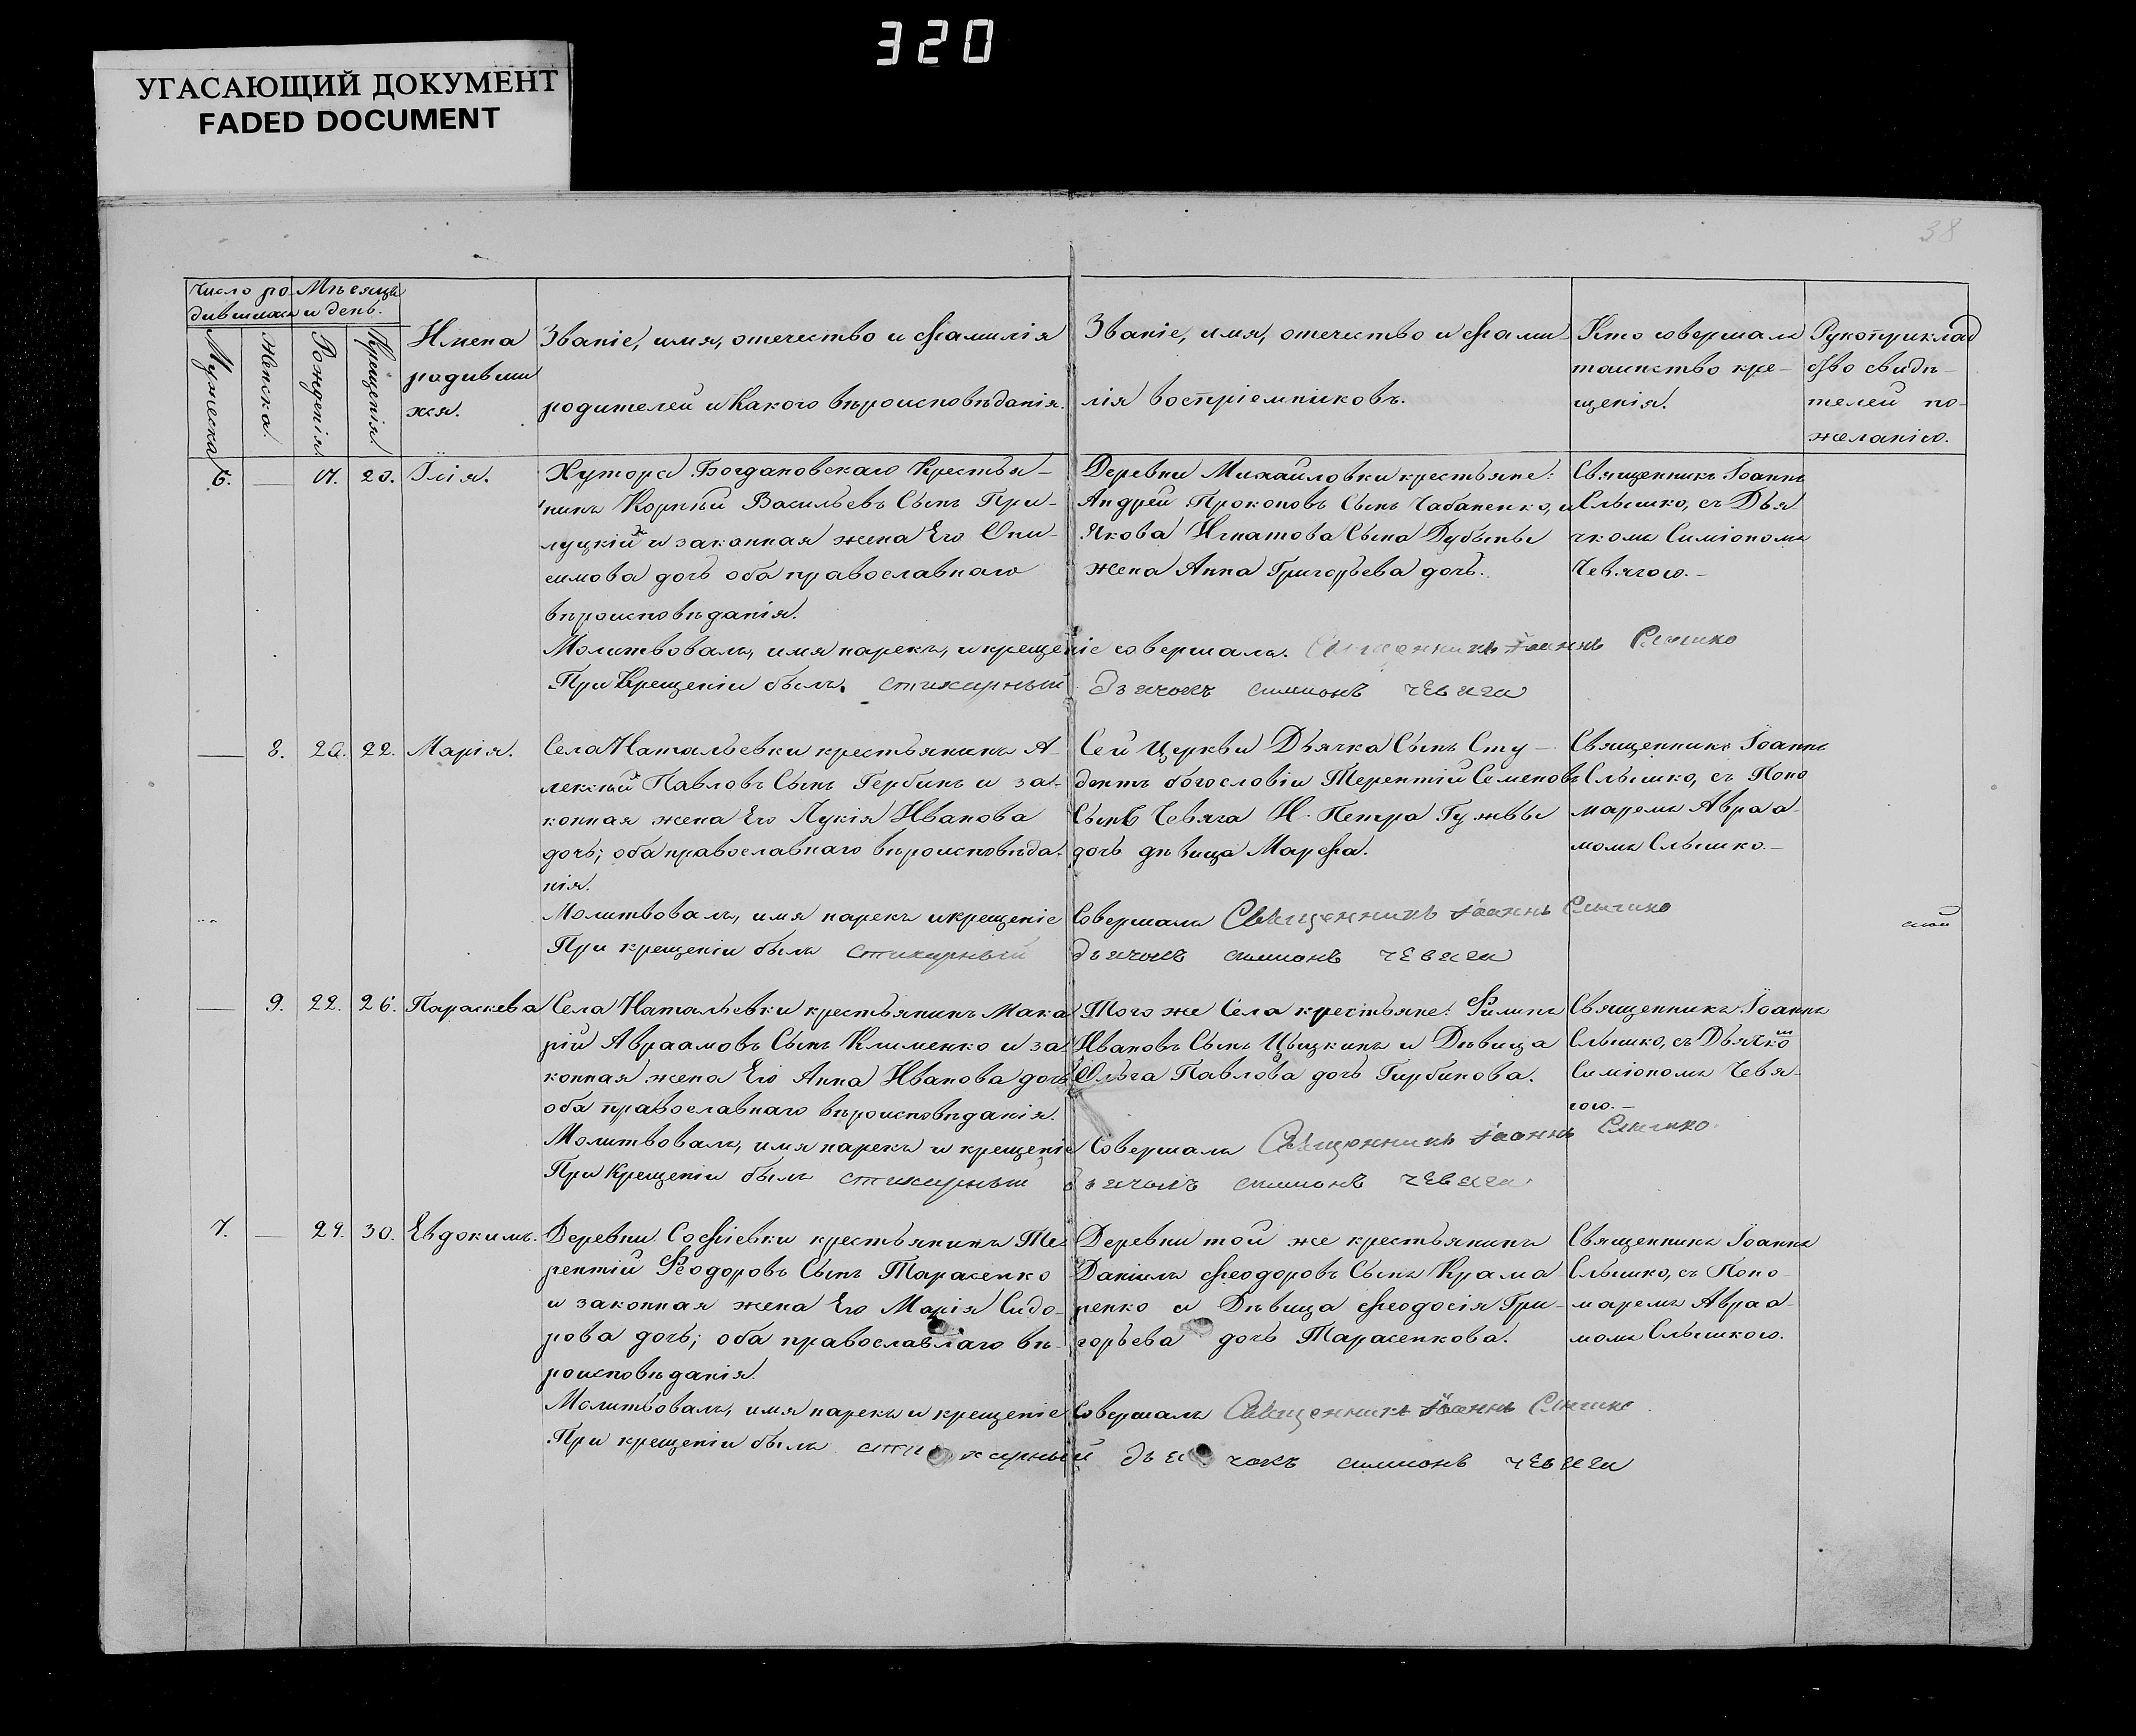 320
УГАСАЮЩИЙ ДОКУМЕНТ
FADED DOCUMENT
38
Число ро- Мѣсяцъ
дившихся и день.
Мужеска
Женска.
Рожденія
Крещенія
Имена
родивши
хся.
Званіе, имя, отечество и фамилія
родителей и какого вѣроисповѣданія.
Званіе, имя, отечество и фами-
лія воспріемниковъ.
Кто совершалъ
таинство кре-
щенія.
Рукоприклад
ство свидѣ-
телей по-
желанію.
6. — 20. Илія.
Хутора Богдановскаго Крестья-
нинъ Корнѣй Васильевъ Сынъ При-
луцкій и законная жена Его Они-
симова дочь оба православнаго
вѣроисповѣданія.
Деревни Михайловки крестьяне:
Андрей Прокоповъ Сынъ Чабаненко, и
Якова Игнатова Сына Дубыны
жена Анна Григорьева дочь.
Священникъ Іоаннъ
Слышко, съ Дья
чкомъ Симіономъ
Чевягою.—
Молитвовалъ, имя нарекъ, и крещеніе совершалъ. Священникъ Іоаннъ Слышко
При Крещеніи былъ стихирный дьячокъ симионъ чевяга
— 8. 20. 22. Марія.
Села Натальевки крестьянинъ А-
лексѣй Павловъ Сынъ Гербинъ и за-
конная жена Его Лукія Иванова
дочь; оба православнаго вѣроисповѣда-
нія.
Сей Церкви Дьячка Сынъ Сту-
дентъ богословіи Терентій Семеновъ
Сынъ Чевяга И. Петра Гужвы
дочь дѣвица Марфа.
Священникъ Іоаннъ
Слышко, съ Поно
маремъ Авраа-
момъ Слышко.—
Молитвовалъ, имя нарекъ и крещеніе Совершалъ Священникъ Іоаннъ Слышко
При крещеніи былъ стихирный дьячокъ симионъ чевяга
— 9. 22. 26. Параскева
Села Натальевки крестьянинъ Мака
рій Авраамовъ Сынъ Клименко и за-
конная жена Его Анна Иванова дочь
оба православнаго вѣроисповѣданія.
Того же Села крестьяне: Филипъ
Ивановъ Сынъ Цыцкинъ и Дѣвица
Ольга Павлова дочь Гирбинова.
Священникъ Іоаннъ
Слышко, съ Дьячко
Симіономъ Чевя-
гою.—
Молитвовалъ, имя нарекъ и крещеніе Совершалъ Священникъ Іоаннъ Слышко.
При Крещеніи былъ стихирный дьячокъ симионъ чевяга
7. — 24. 30. Евдокимъ.
Деревни Софіевки крестьянинъ Те-
рентій Феодоровъ Сынъ Тарасенко
и законная жена Его Марія Сидо-
рова дочь; оба православнаго вѣ-
роисповѣданія.
Деревни той же крестьянинъ
Даніилъ Феодоровъ Сынъ Крама
ренко и Дѣвица Феодосія Гри-
горьева дочь Тарасенкова.
Священникъ Іоаннъ
Слышко, съ Поно
маремъ Авраа-
момъ Слышкою.
Молитвовалъ, имя нарекъ и крещеніе Совершалъ Священникъ Іоаннъ Слышко
При крещеніи былъ стихирный дьячокъ симионъ чевяга